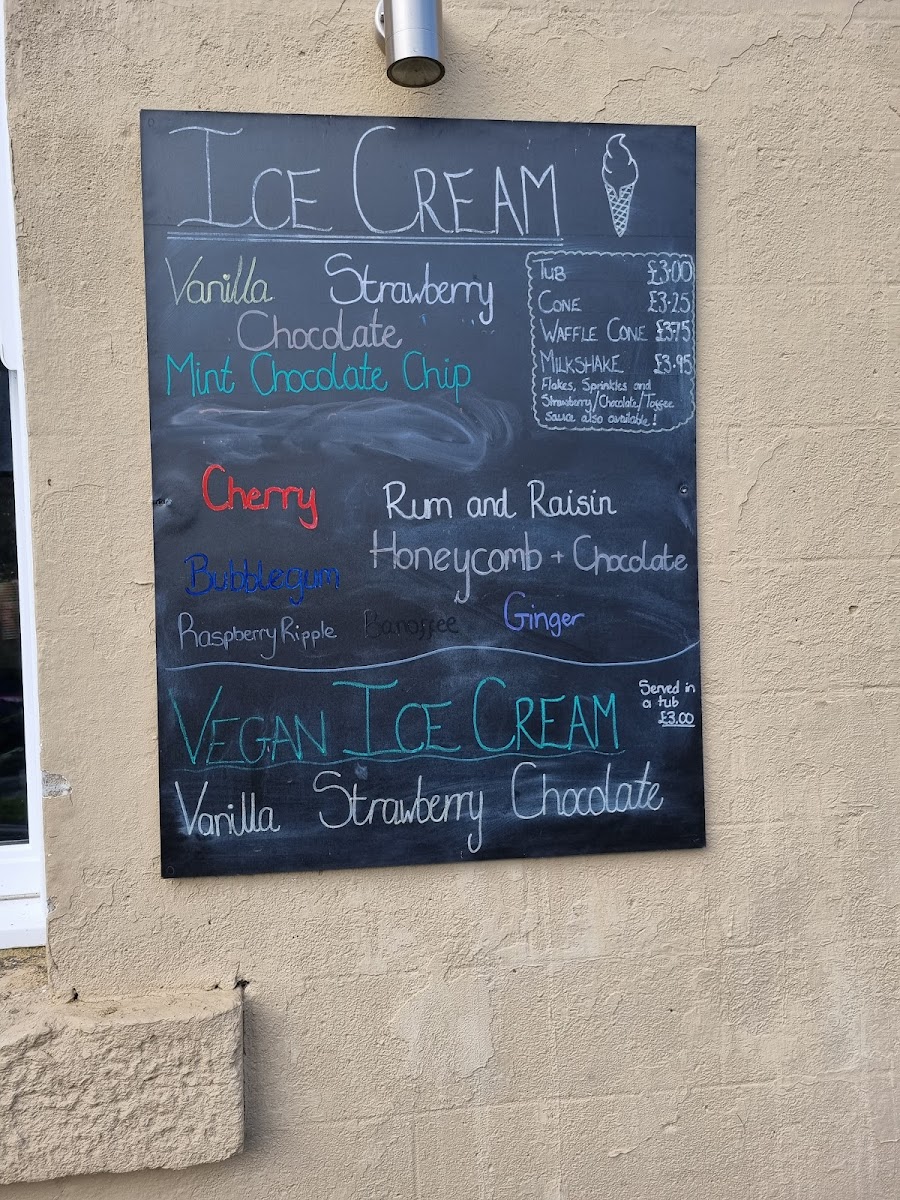 ICE CREAM
Vanilla Strawberry
Chocolate
Mint Chocolate Chip
TUB £3.00
CONE £3.25
WAFFLE CONE £3.75
MILKSHAKE £3.95
Flakes, Sprinkles and
Strawberry/Chocolate/Toffee
Sauce also available!
Cherry Rum and Raisin
Honeycomb + Chocolate
Bubblegum
Ginger
Raspberry Ripple Banoffee
VEGAN ICE CREAM
Served in
a tub
£3.00
Vanilla Strawberry Chocolate